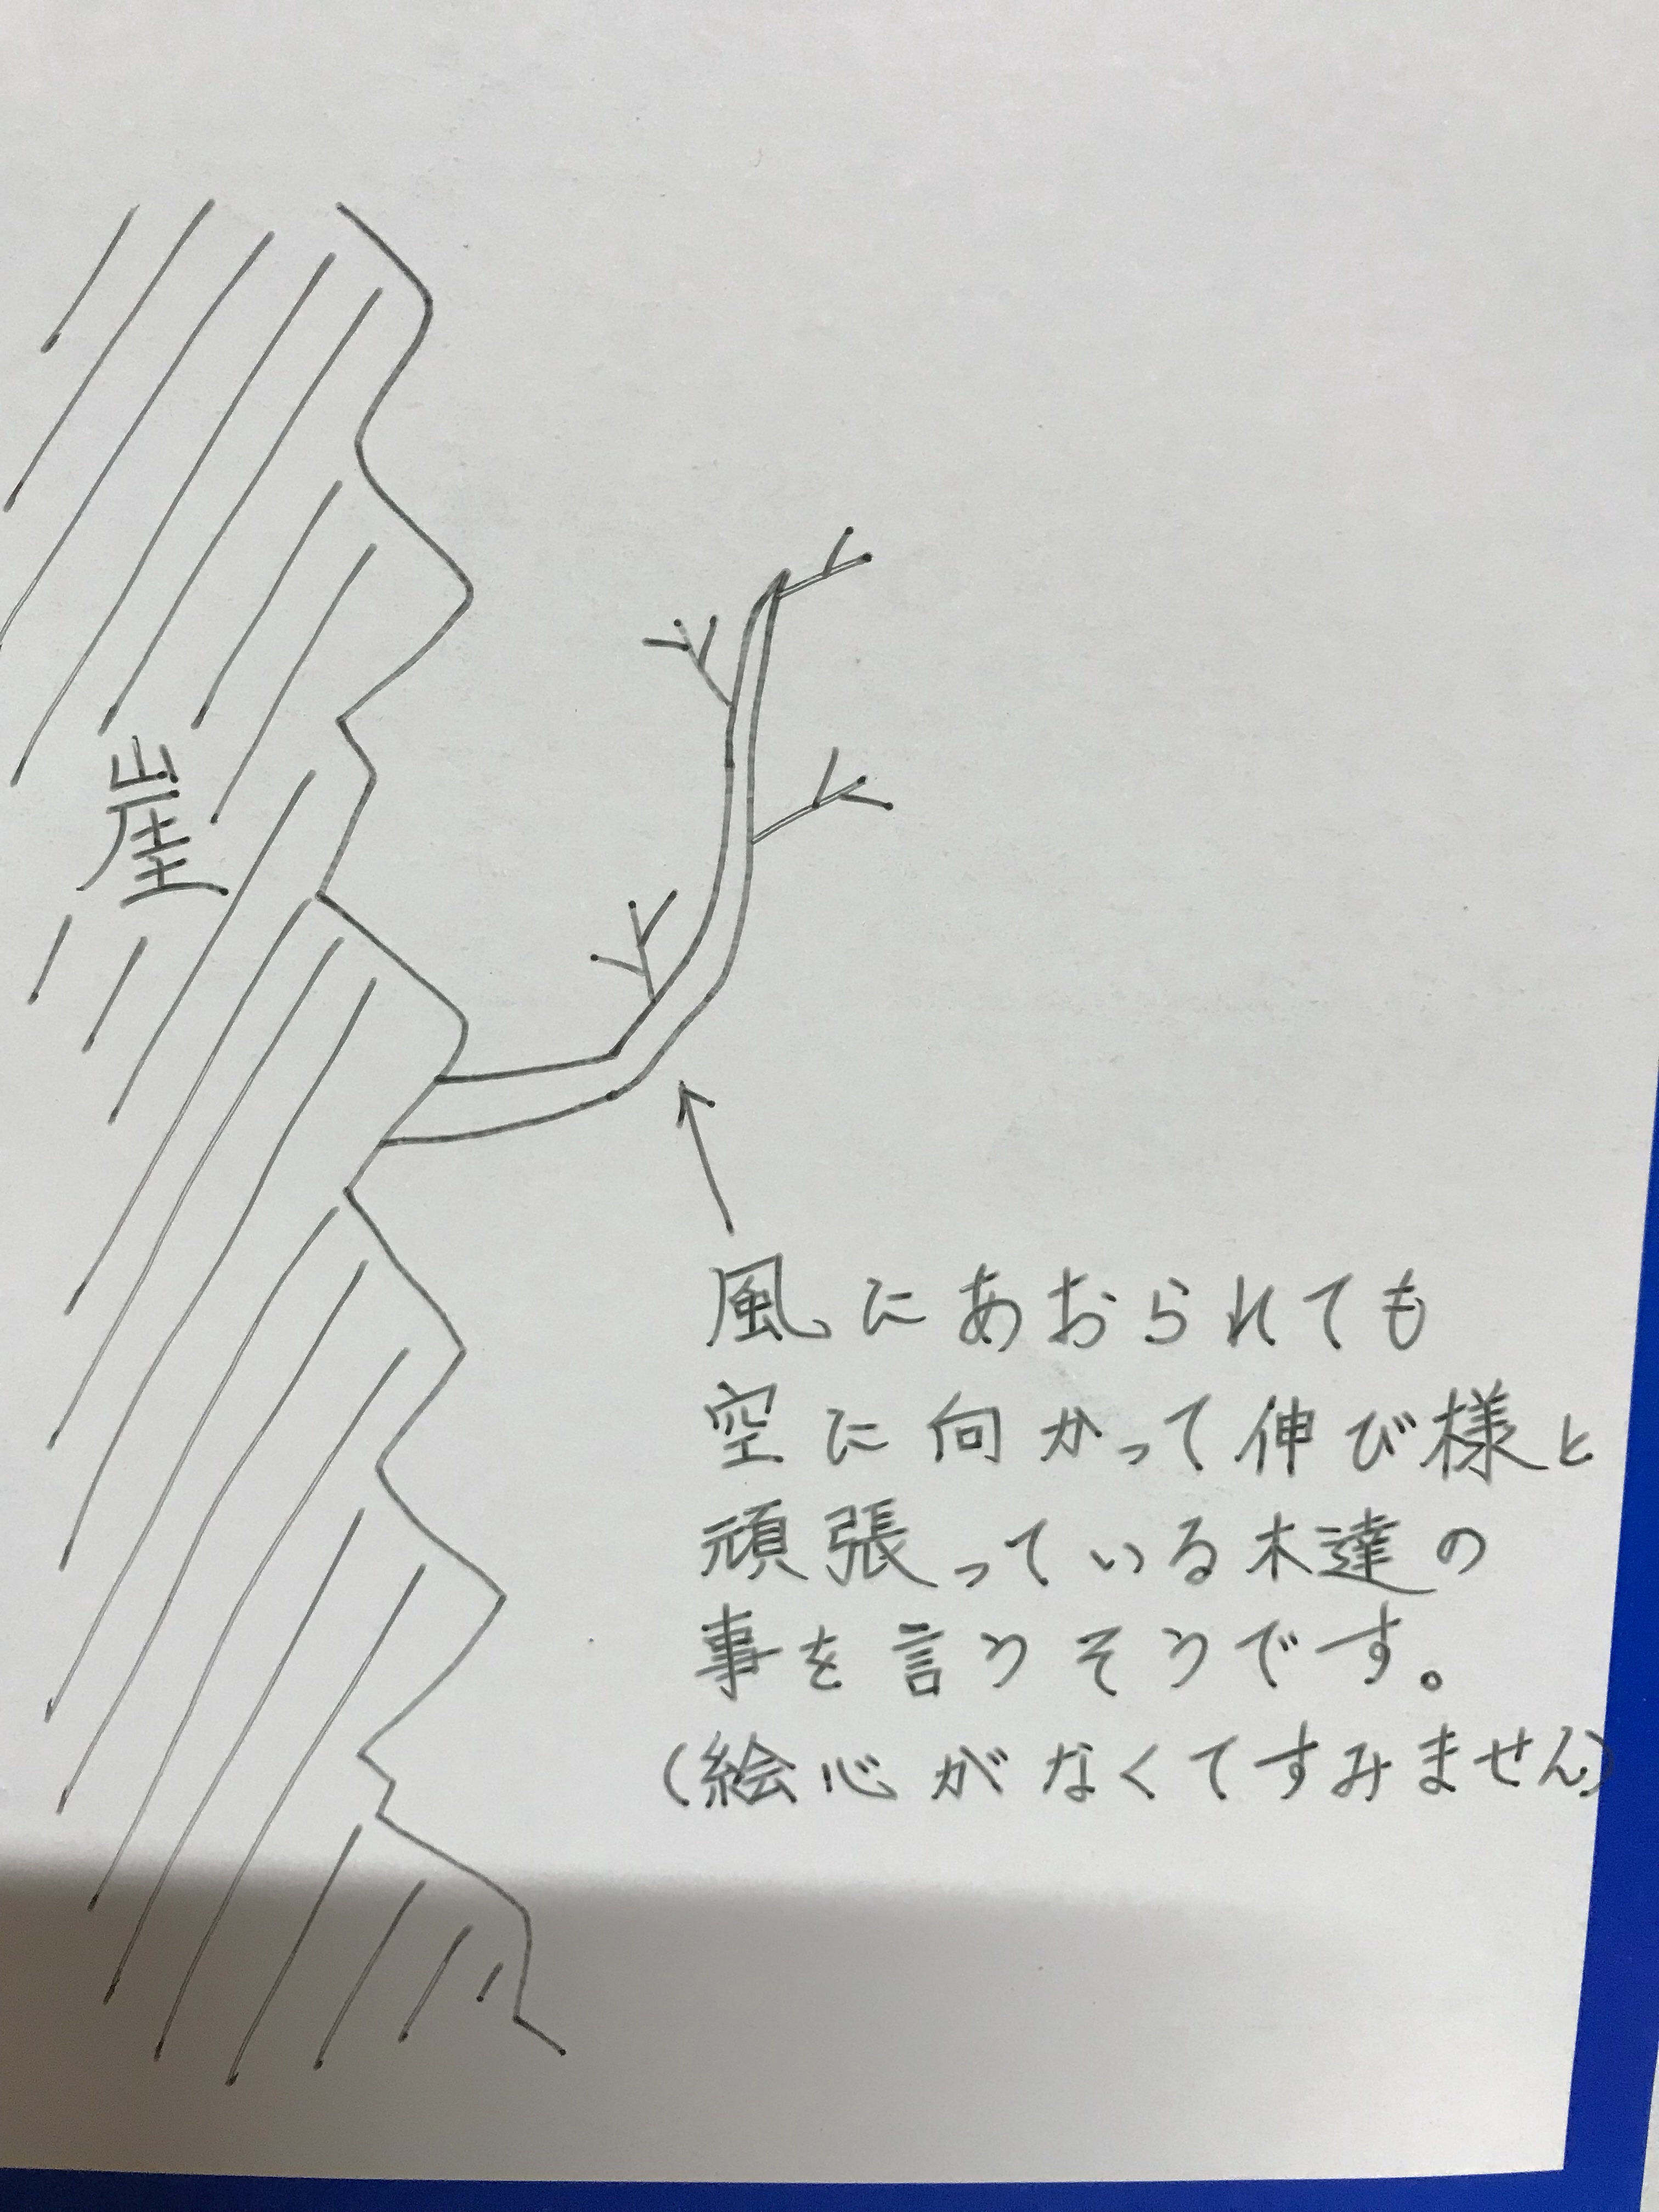 崖
風にあおられても
空に向かって伸び様と
頑張っている木達の
事を言うそうです。
(絵心がなくてすみません)